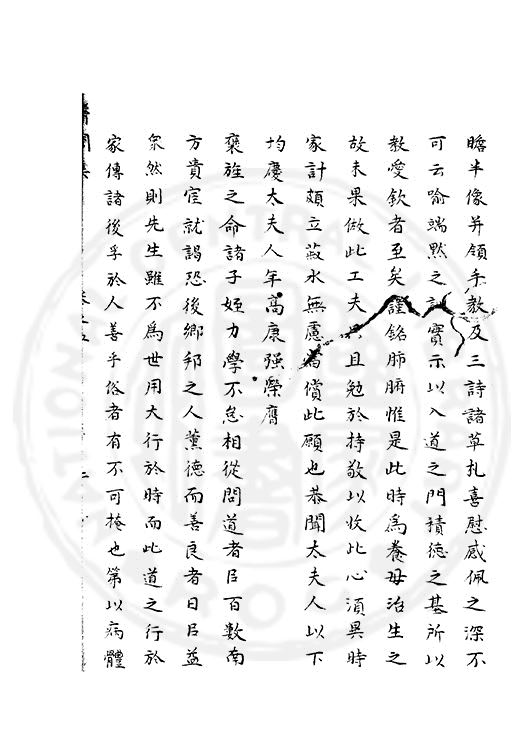 瞻半像并領手教及三詩諸草札喜慰感佩之深不
可云喻端默之實示以入道之門積德之基所以
教愛欽者至矣謹銘肺腑惟是此時爲養母治生之
故未果倣此工夫且勉於持敬以收此心須異時
家計頗立菽水無慮爲償此願也恭聞太夫人以下
均慶太夫人年高康强榮膺
褒旌之命諸子姪力學不怠相從問道者㠯百數南
方貴宦就謁恐後鄉邦之人薰德而善良者日㠯益
衆然則先生雖不爲世用大行於時而此道之行於
家傳諸後孚於人善乎俗者有不可掩也第以病體